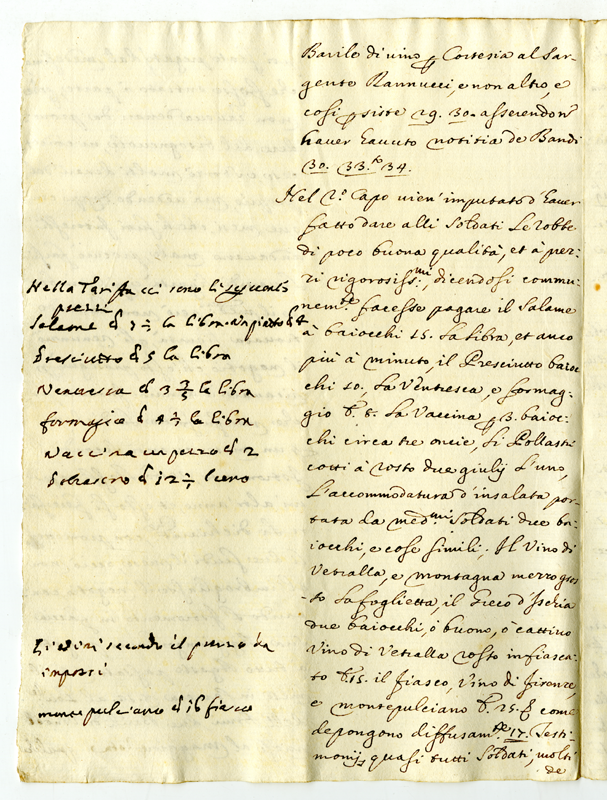 Barile di vino p Cortesia al Sar-
gente Rannucci, e non altro e
cosi psiste 29. 30. asserendon
haver havuto notitia de Bandi
30. 33. to 34.
Nel 2.o Capo vien' imputato d'haver
fatto dare alli Soldati Le robbe
di poco buona qualità, et à prez-
zi rigorosiss.mi, dicendosi commu-
nem.te facesse pagare il Salame
à baiocchi 15. La libra, et anco
più à minuto, il Presciutto baioc
chi 10, La Ventresca, e formag-
gio b. 8. La Vaccina p 3. baioc-
chi circa tre oncie, Li Pollastri
cotti à rosto due giulij L'uno,
L'accommodatura d'insalata por-
tata da med.mi Soldati due ba-
iocchi, e cose simili; Il Vino di
Vetralla, e montagna mezzo gros
so La foglietta, il Greco d'Ischia
due baiocchi, ò buono, ò cattivo
Vino di Vetralla rosso infiasca-
to b. 15. il fiasco, Vino di Firenze,
e montepulciano b. 25. come
depongono diffusam.te 17. Testi-
monij, quasi tutti Soldati, molti
de
Nella Tariffa ci sono li seguenti
prezzi
Salame la libra
Presciutto 5 la libra
Ventresca 3 la libra
formagio 4 la libra
Vaccina un pezzo 2
Pollastro 12 l'uno
Li vini secondo il prezzo da
imporsi
monte pulciano 16 fiasco